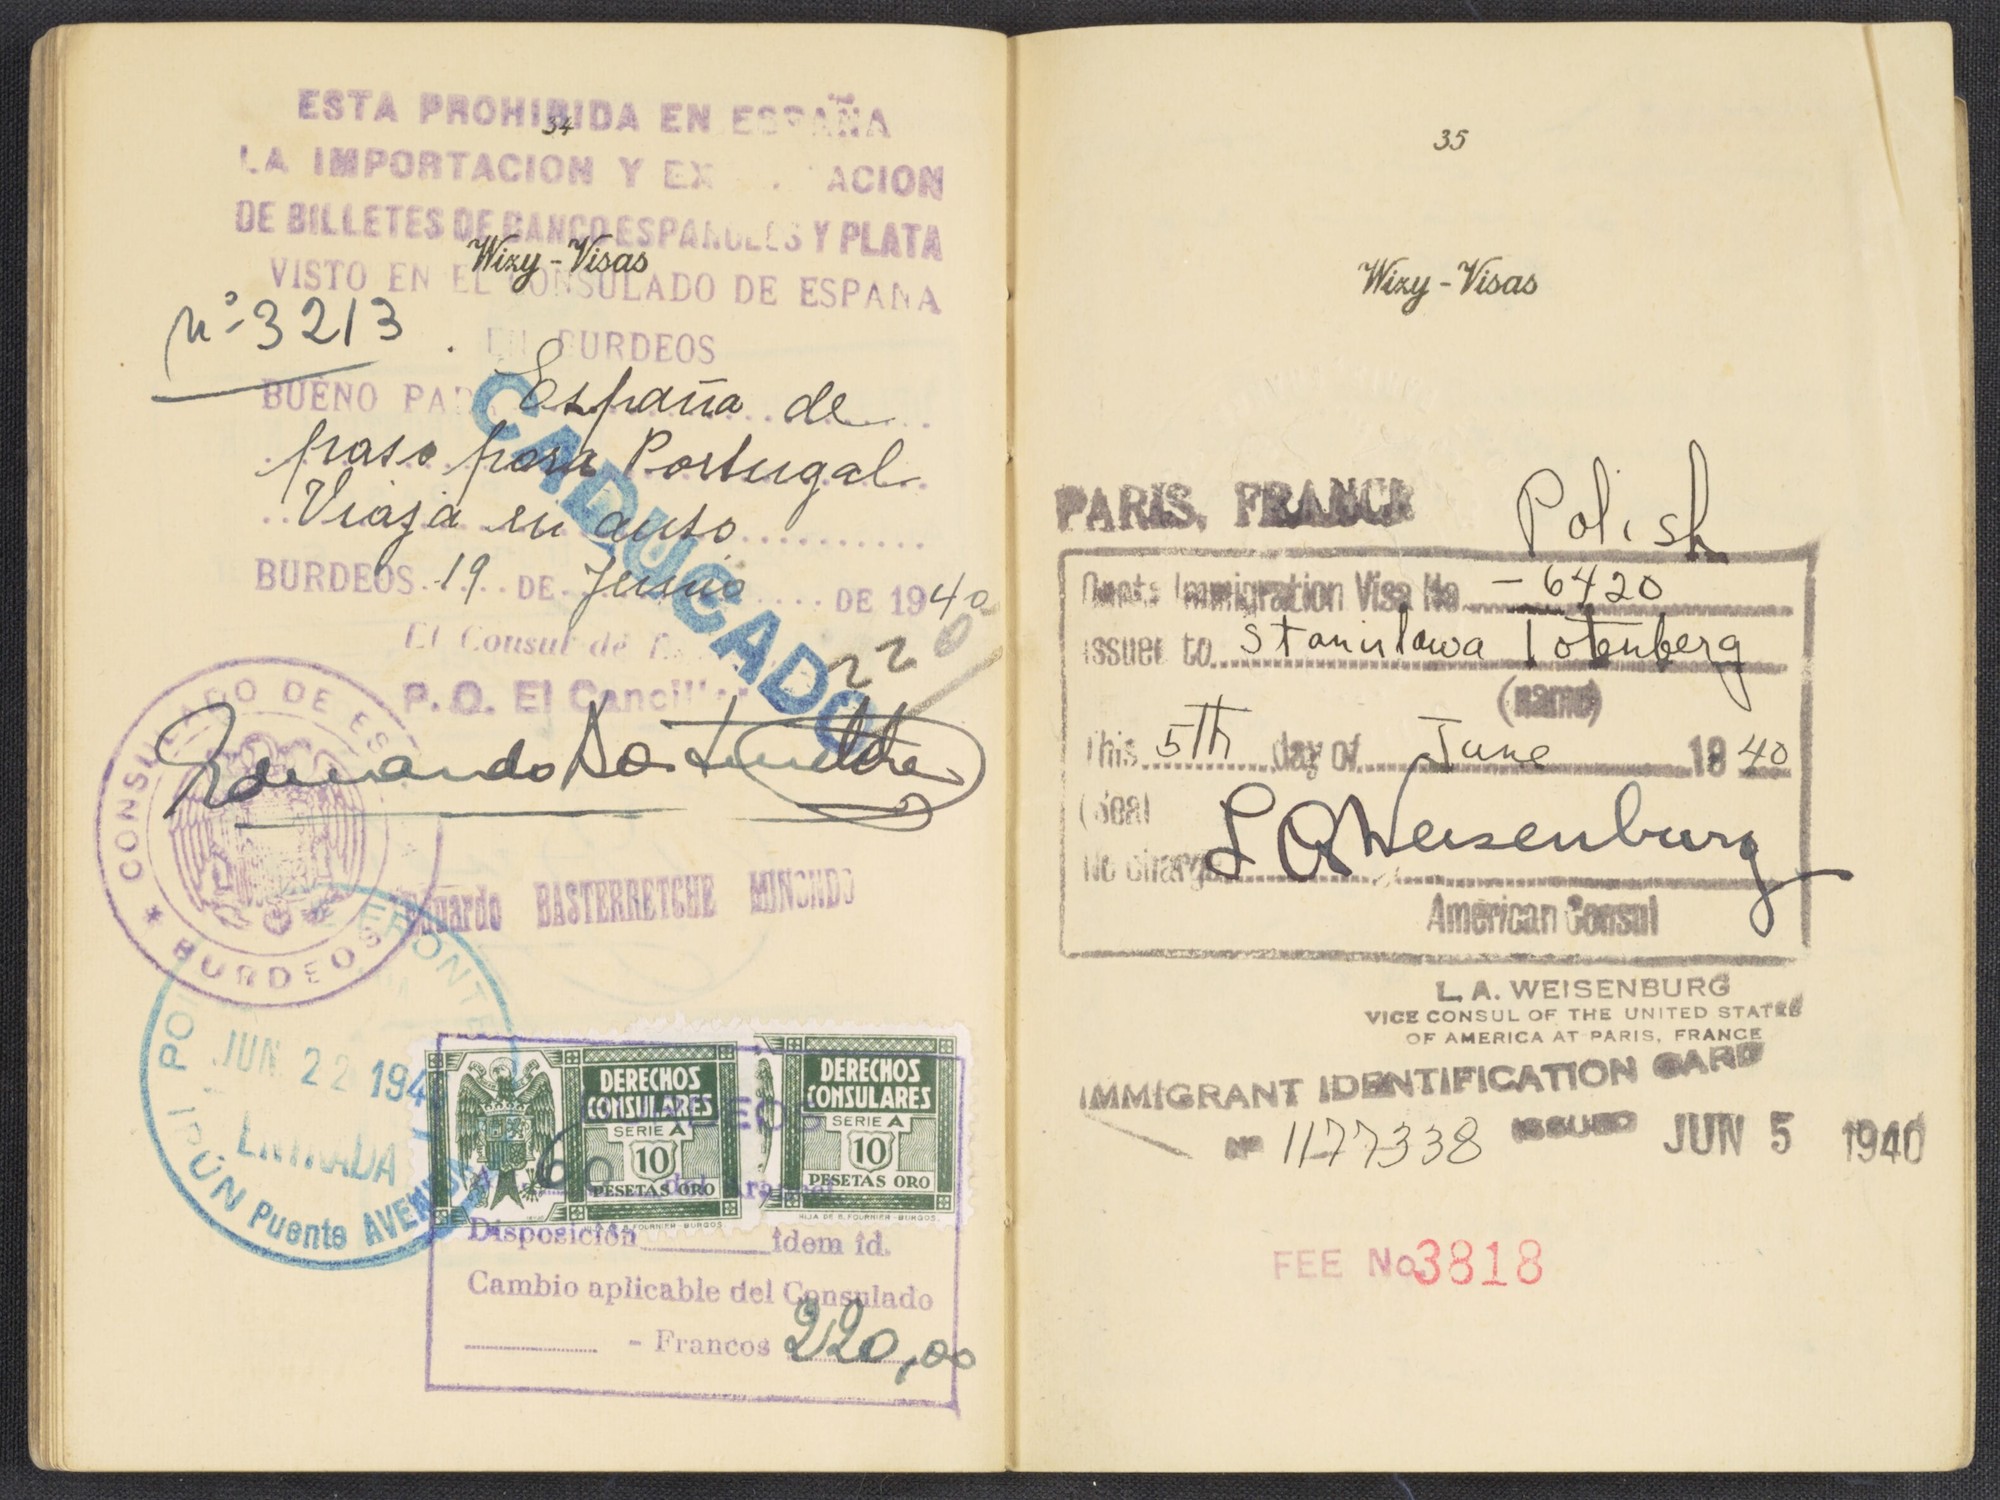 34
ESTA PROHIBIDA EN ESPAÑA
LA IMPORTACION Y EX ACION
DE BILLETES DE BANCO ESPAÑOLES Y PLATA
Wizy-Visas
VISTO EN EL CONSULADO DE ESPAÑA
nº 3213
EN BURDEOS
BUENO PARA España de
paso para Portugal
Viaja en auto
BURDEOS 19 DE Junio DE 1940
CADUCADO
El Consul de
220
P. O. El Canciller
CONSULADO DE ESPAÑA
* BURDEOS
Eduardo BASTERRETCHE MINONDO
FRONT
JUN 22 194
ENTRADA
IRÚN Puente AVENIDA
DERECHOS
CONSULARES
SERIE A
10
PESETAS ORO
DERECHOS
CONSULARES
SERIE A
10
PESETAS ORO
HIJA DE B. FOURNIER - BURGOS
60 del Arancel
Disposición idem id.
Cambio aplicable del Consulado
- Francos 220,00
35
Wizy-Visas
PARIS, FRANCE
Polish
Quota Immigration Visa No. - 6420
issued to Stanislawa Totenberg
(name)
This 5th day of June 1940
(Seal
L A Weisenburg
No charge
American Consul
L. A. WEISENBURG
VICE CONSUL OF THE UNITED STATES
OF AMERICA AT PARIS, FRANCE
IMMIGRANT IDENTIFICATION CARD
Nº 1177338 ISSUED JUN 5 1940
FEE No 3818